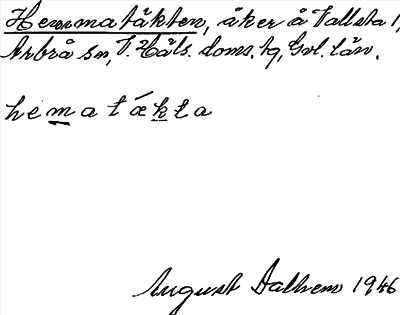 Hemmatäkten, åker å Vallsta 1,
Arbrå sn, V. Häls. doms. hg, Gvl. län.
hematækta
August Dalhem 1946